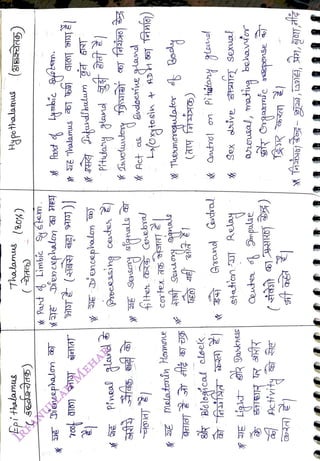 Epithalamus
(उध्वचेतक)
* यह Diencephalon का
roof वाला भाग बनाता
है।
* यह Pineal gland के
जरिये जैविक घड़ी को
चलाता है।
* यह Melatonin Hormone
बनाता है जो नींद का चक्र
और Biological clock
को नियंत्रित करता है।
* यह Light और Darkness
के आधार पर शरीर
की Activity को सेट
करता है।
Thalamus (80%)
(चेतक)
* Part of Limbic System.
* यह Diencephalon का मध्य
भाग है (सबसे बड़ा भाग)।
* यह Diencephalon का
processing center है।
* यह Sensory signals को
filter करके Cerebral
cortex तक भेजता है।
सभी Sensory signals
यहीं से जाते हैं।
* इसे Grand Central
Station या Relay
Center of Impulse
(संवेगों का प्रसारण केंद्र)
भी कहते हैं।
Hypothalamus (अधश्चेतक)
* Part of Limbic System.
* यह Thalamus का फर्श वाला भाग है।
* इससे Infundibulum वृंत द्वारा
Pituitary gland जुड़ी होती है।
* Involuntary क्रियाओं का नियंत्रण केंद्र
* Act as Endocrine gland
↳ (Oxytocin + ADH का निर्माण)
* Thermoregulator of Body
(ताप नियंत्रक)
* Control on Pituitary gland
* Sex drive अर्थात् sexual
arousal, mating behavior
और Orgasmic response को
कंट्रोल करता है।
* नियंत्रण केंद्र - भूख, प्यास, प्रेम, घृणा, नींद